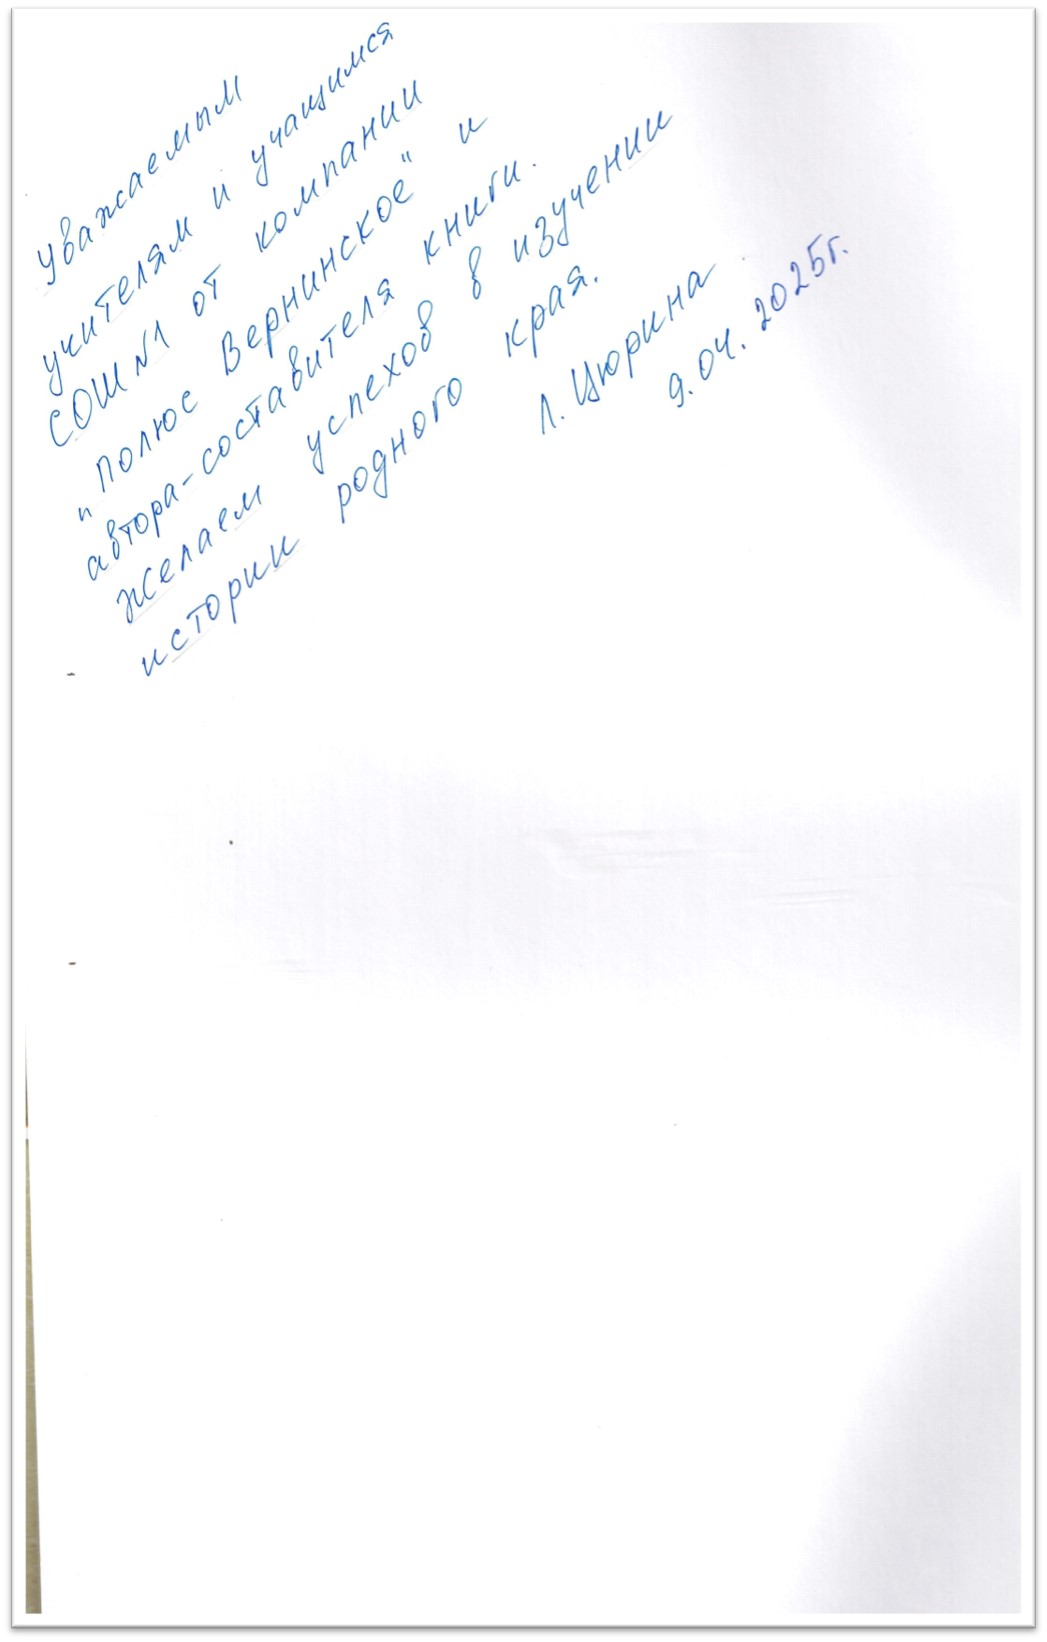 Уважаемым
учителям и учащимся
СОШ №1 от компании
"Полюс Вернинское" и
автора-составителя книги.
Желаем успехов в изучении
истории родного края.
Л. Цюрина
9.04.2025г.